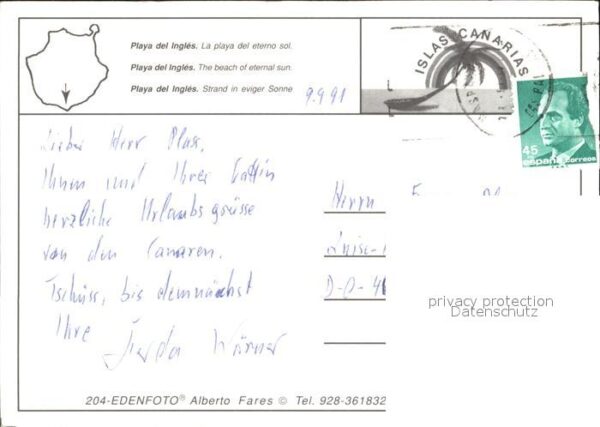 Playa del Inglés. La playa del eterno sol.
Playa del Inglés. The beach of eternal sun.
Playa del Inglés. Strand in eviger Sonne
9.9.91
ISLAS CANARIAS
45
españa correos
Lieber Herr
Ihnen und Ihrer Gattin
herzliche Urlaubsgrüsse
von den Canaren.
Tschüss, bis demnächst
Ihre
Gerda Wörner
Herrn
D-O-
privacy protection
Datenschutz
204-EDENFOTO® Alberto Fares © Tel. 928-361832